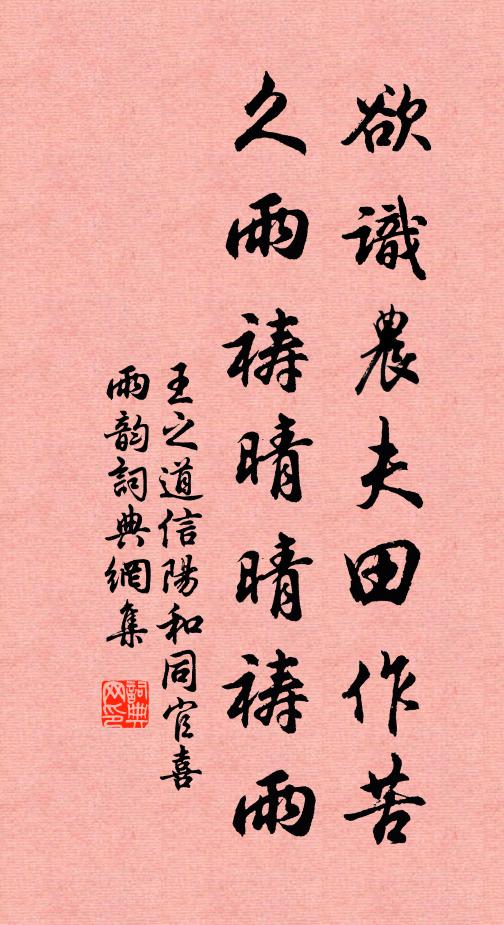 欲識農夫田作苦
久雨祷晴晴祷雨
王之道信陽和同官喜
雨韵詞典網集
詞典網印